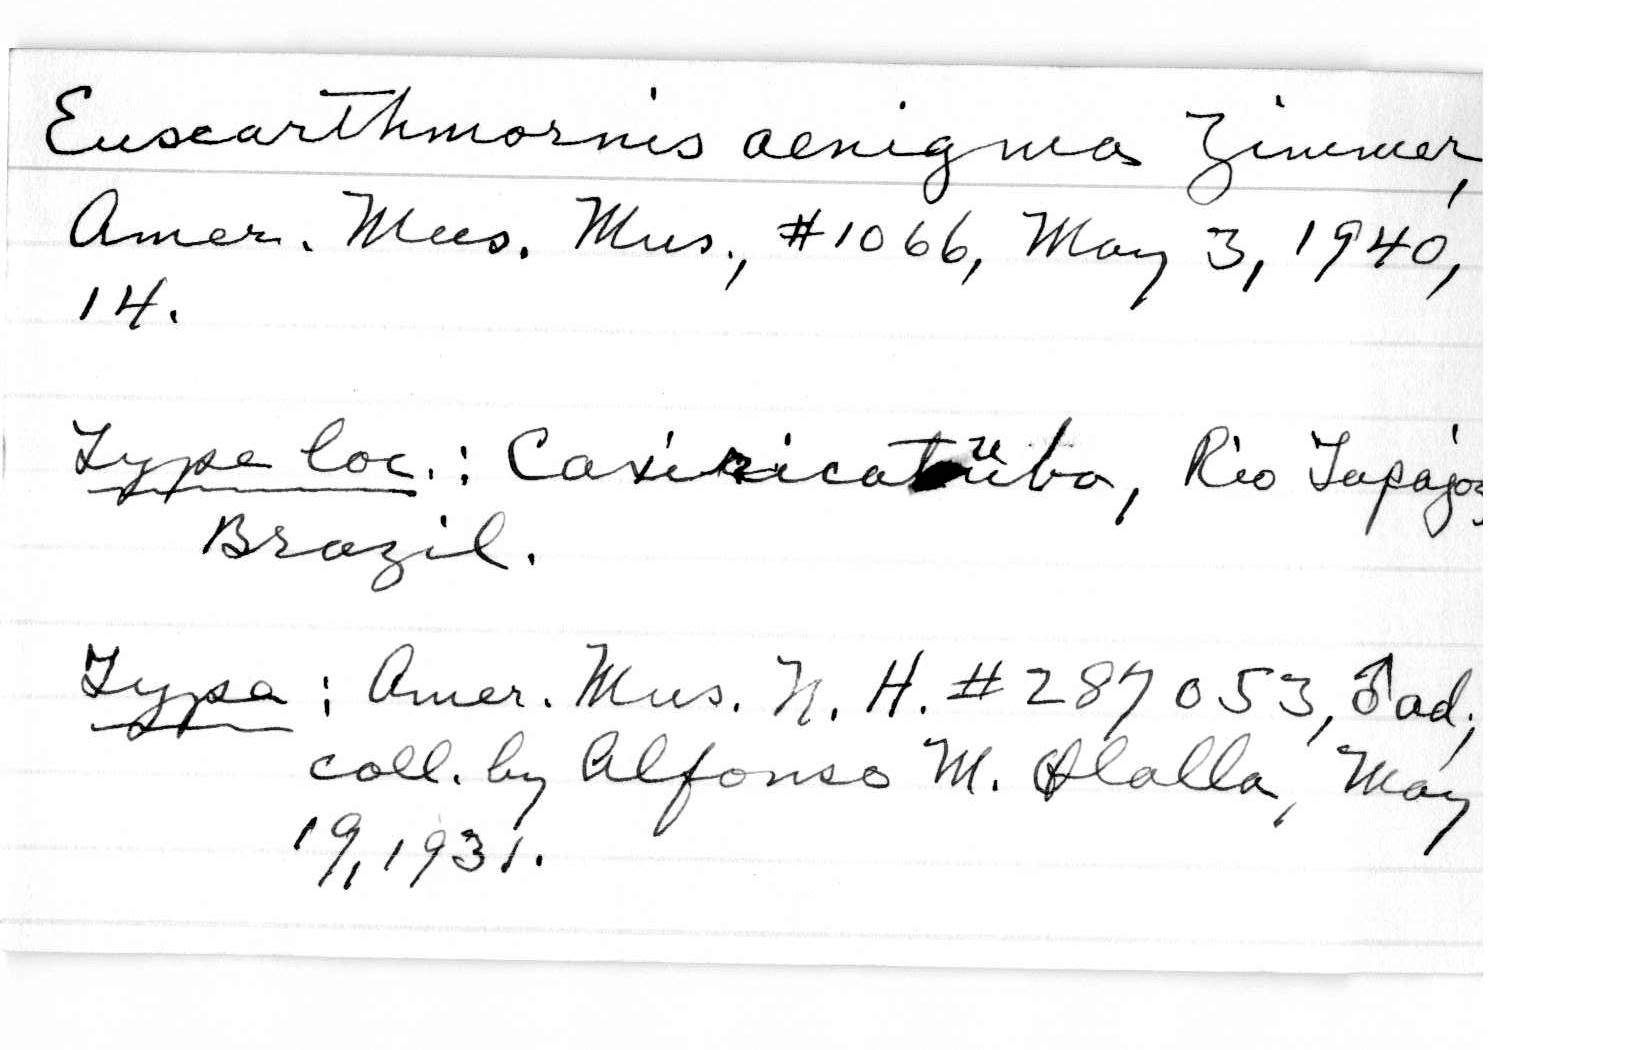 Euscarthmornis aenigma Zimmer,
Amer. Mus. Mus., #1066, May 3, 1940,
14.
Type loc.: Caxiricatuba, Rio Tapajoz
Brazil.
Type: Amer. Mus. N. H. #287053, ♂ad;
coll. by Alfonso M. Olalla, May
19, 1931.